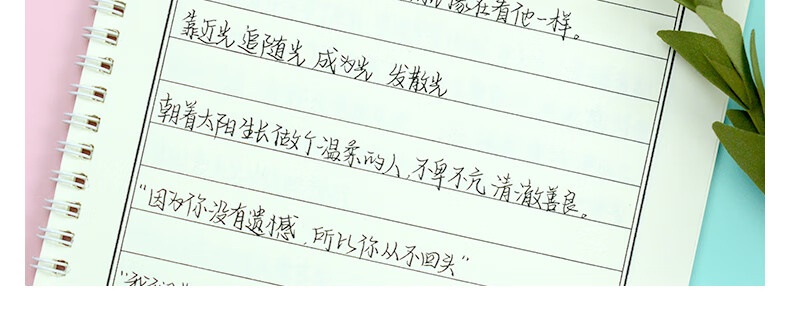 像在看他一样。
靠近光 追随光 成为光 发散光
朝着太阳生长做个温柔的人,不卑不亢 清澈善良。
“因为你没有遗憾,所以你从不回头”